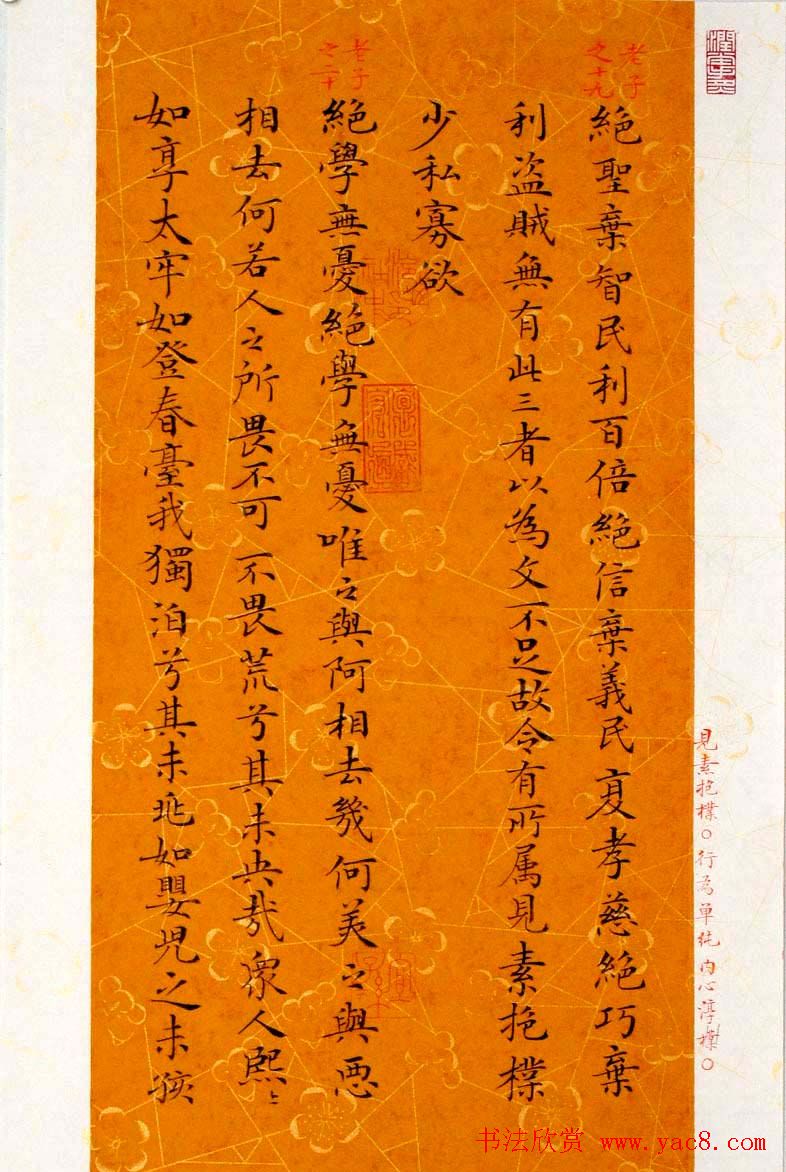 見素抱樸○行為单纯内心淳樸○
老子
之十九
絶聖棄智民利百倍絶信棄義民复孝慈絶巧棄
利盗賊無有此三者以為文不足故令有所属見素抱樸
少私寡欲
老子
之二十
絶學無憂絶學無憂唯之與阿相去幾何美之與惡
相去何若人之所畏不可不畏荒兮其未央哉衆人熙〻
如享太牢如登春臺我獨泊兮其未兆如嬰児之未孩
书法欣赏 www.yac8.com